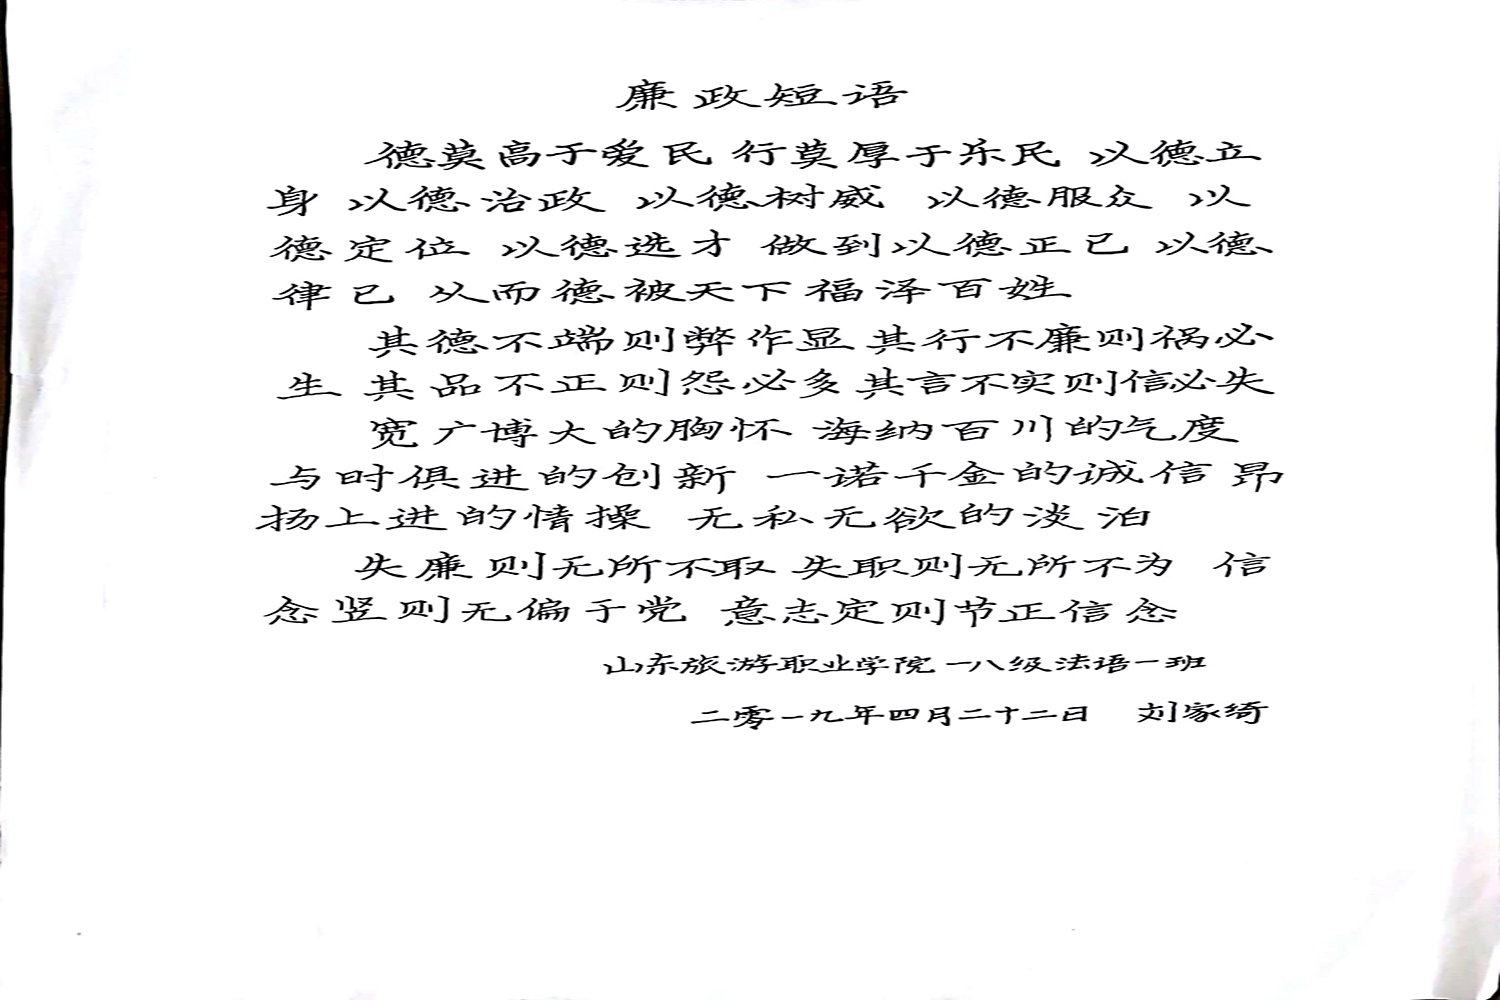 廉政短语
德莫高于爱民 行莫厚于乐民 以德立
身 以德治政 以德树威 以德服众 以
德定位 以德选才 做到以德正己 以德
律己 从而德被天下福泽百姓
其德不端则弊作显 其行不廉则祸必
生 其品不正则怨必多 其言不实则信必失
宽广博大的胸怀 海纳百川的气度
与时俱进的创新 一诺千金的诚信 昂
扬上进的情操 无私无欲的淡泊
失廉则无所不取 失职则无所不为 信
念竖则无偏于党 意志定则节正信念
山东旅游职业学院一八级法语一班
二零一九年四月二十二日 刘家绮